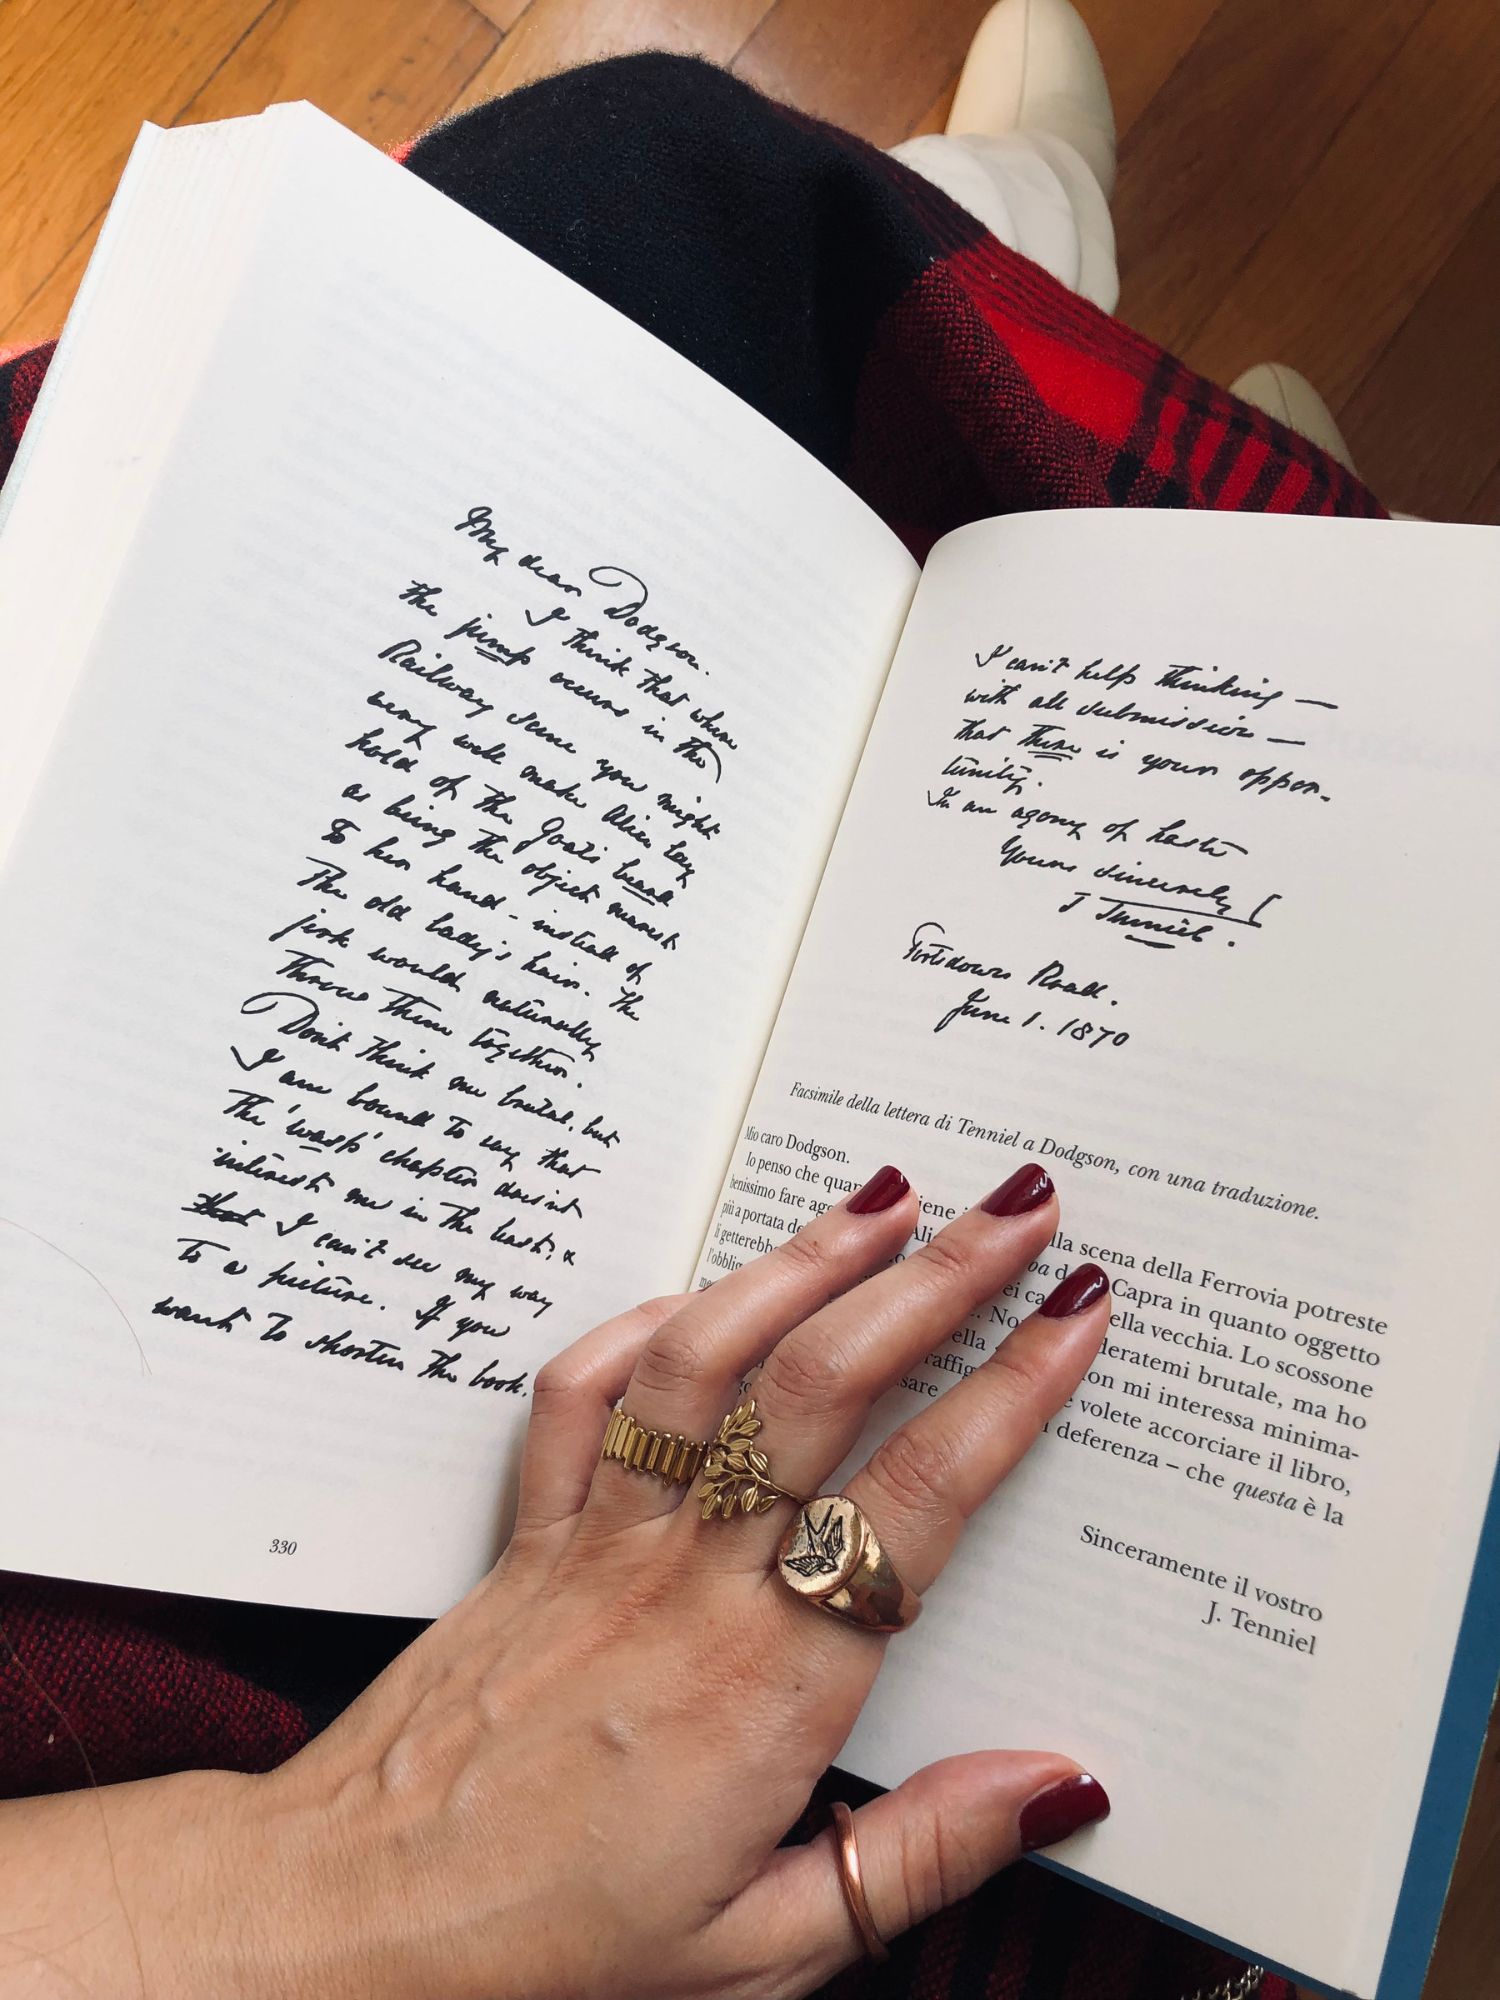 My dear Dodgson.
I think that when
the jump occurs in the
Railway scene you might
very well make Alice lay
hold of the Goat's beard
as being the object nearest
to her hand - instead of
the old lady's hair. The
jerk would naturally
throw them together.
Don't think me brutal, but
I am bound to say that
the 'wasp' chapter doesn't
interest me in the least, &
that I can't see my way
to a picture. If you
want to shorten the book,
330
I can't help thinking —
with all submission —
that there is your oppor-
tunity.
In an agony of haste
Yours sincerely
J Tenniel.
Portsdown Road.
June 1. 1870
Facsimile della lettera di Tenniel a Dodgson, con una traduzione.
Mio caro Dodgson.
Io penso che scena della Ferrovia potreste
benissimo fare Capra in quanto oggetto
più a portata vecchia. Lo scossone
li getterebbe brutale, ma ho
mi interessa minima-
volete accorciare il libro,
deferenza – che questa è la
Sinceramente il vostro
J. Tenniel